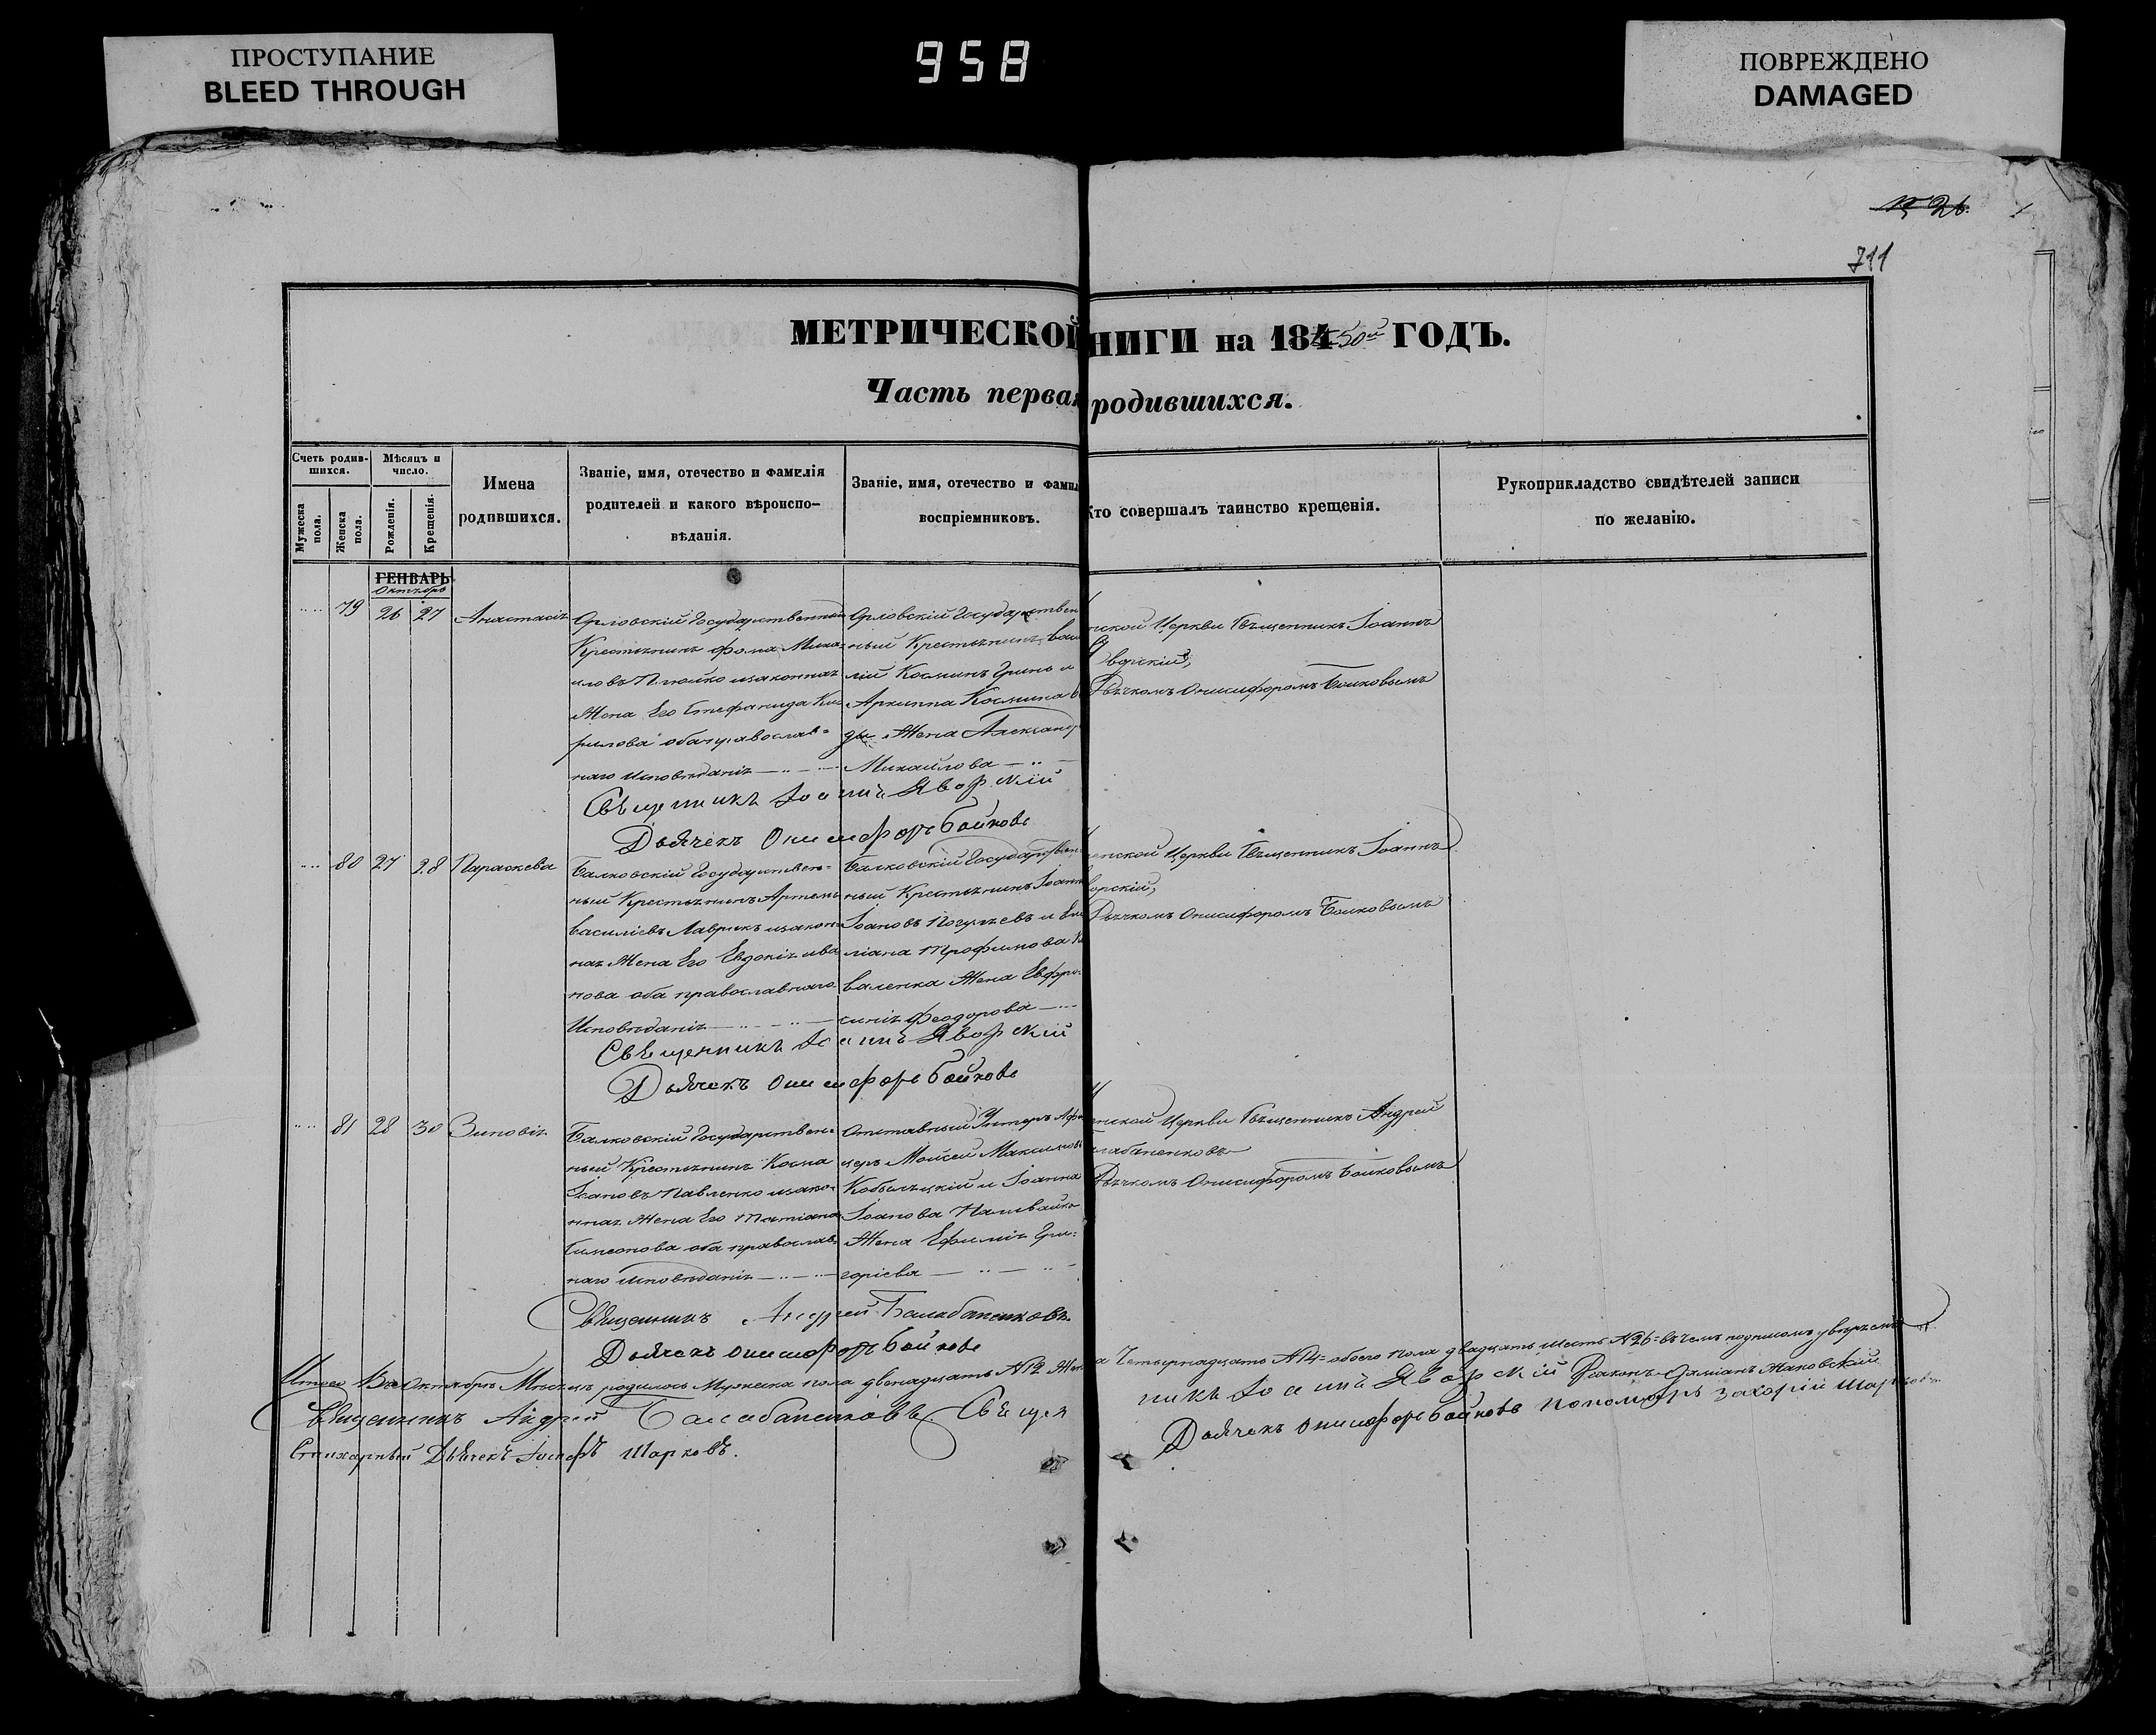 ПРОСТУПАНИЕ
BLEED THROUGH
958
ПОВРЕЖДЕНО
DAMAGED
№ 26.
711
МЕТРИЧЕСКОЙ НИГИ на 184 50й ГОДЪ.
Часть первая родившихся.
Счетъ родив-
шихся.
Мужеска
пола.
Женска
пола.
Мѣсяцъ и
число.
Рожденія.
Крещенія.
Имена
родившихся.
Званіе, имя, отечество и фамилія
родителей и какого вѣроиспо-
вѣданія.
Званіе, имя, отечество и фамил
воспріемниковъ.
Кто совершалъ таинство крещенія.
Рукоприкладство свидѣтелей записи
по желанію.
ГЕНВАРЬ
Октябрь
79 26 27 Анастасія
Орловскій Государственный
Крестьянинъ Фома Михаи-
ловъ законная
Жена Его Стефанида Ки
рилова оба православ-
наго исповѣданія
Орловскій Государствен
ный Крестьянинъ Васи
лій Косминъ и
Архиппа Космина
Жена Александр
Михайлова
нской Церкви Священникъ Іоаннъ
Яворскій,
Дьячкомъ Онисифоромъ Бойковымъ
Священникъ Іоаннъ Яворскій
Дьячекъ Онисифоръ Бойковъ
80 27 28 Параскева
Балковскій Государствен-
ный Крестьянинъ Артемъ
Василіевъ Лаврикъ закон-
ная Жена Его Евдокія Ива
нова оба православнаго
Исповѣданія
Балковскій Государствен
ный Крестьянинъ Іоаннъ
Іоановъ и
ліана Трофимова
Жена Евфро-
синія Феодорова
енской Церкви Священникъ Іоаннъ
ворскій,
Дьячкомъ Онисифоромъ Бойковымъ
Священникъ Іоаннъ Яворскій
Дьячекъ Онисифоръ Бойковъ
81 28 30 Зиновія
Балковскій Государствен-
ный Крестьянинъ Косма
Іоановъ Павленко зако-
нная Жена Его Татіана
Симеонова оба православ-
наго исповѣданія
Отставный Унтеръ Офи
церъ Мойсей Максимовъ
и Іоанна
Іоанова
Жена Ефимія Гри-
горіева
енской Церкви Священникъ Андрей
алабаненковъ
Дьячкомъ Онисифоромъ Бойковымъ
Священникъ Андрей Балабаненковъ
Дьячекъ Онисифоръ Бойковъ
Итого Въ Октябрѣ Мѣсяцѣ родилось Мужеска пола двенадцать №12 Жен
а Четырнадцать №14= обоего пола двадцать шесть №26= въ чемъ подписомъ увѣряемъ
Священникъ Андрей Балабаненковъ. Священ
никъ Іоаннъ Яворскій Діаконъ Даміанъ Маковскій
Стихарный Дьячекъ Іосифъ Шарковъ.
Дьячекъ Онисифоръ Бойковъ Пономарь Захарій Шарковъ